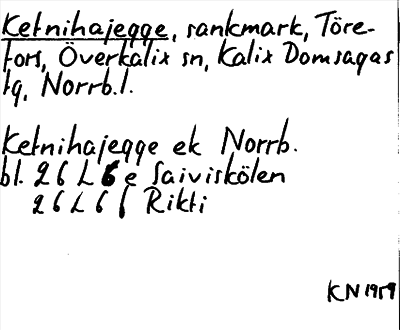 Ketnihajegge, sankmark, Töre-
fors, Överkalix sn, Kalix Domsagas
tg, Norrb.l.
Ketnihajegge ek Norrb.
bl. 26 L 6 e Saiviskölen
26 L 6 f Rikti
KN 1959